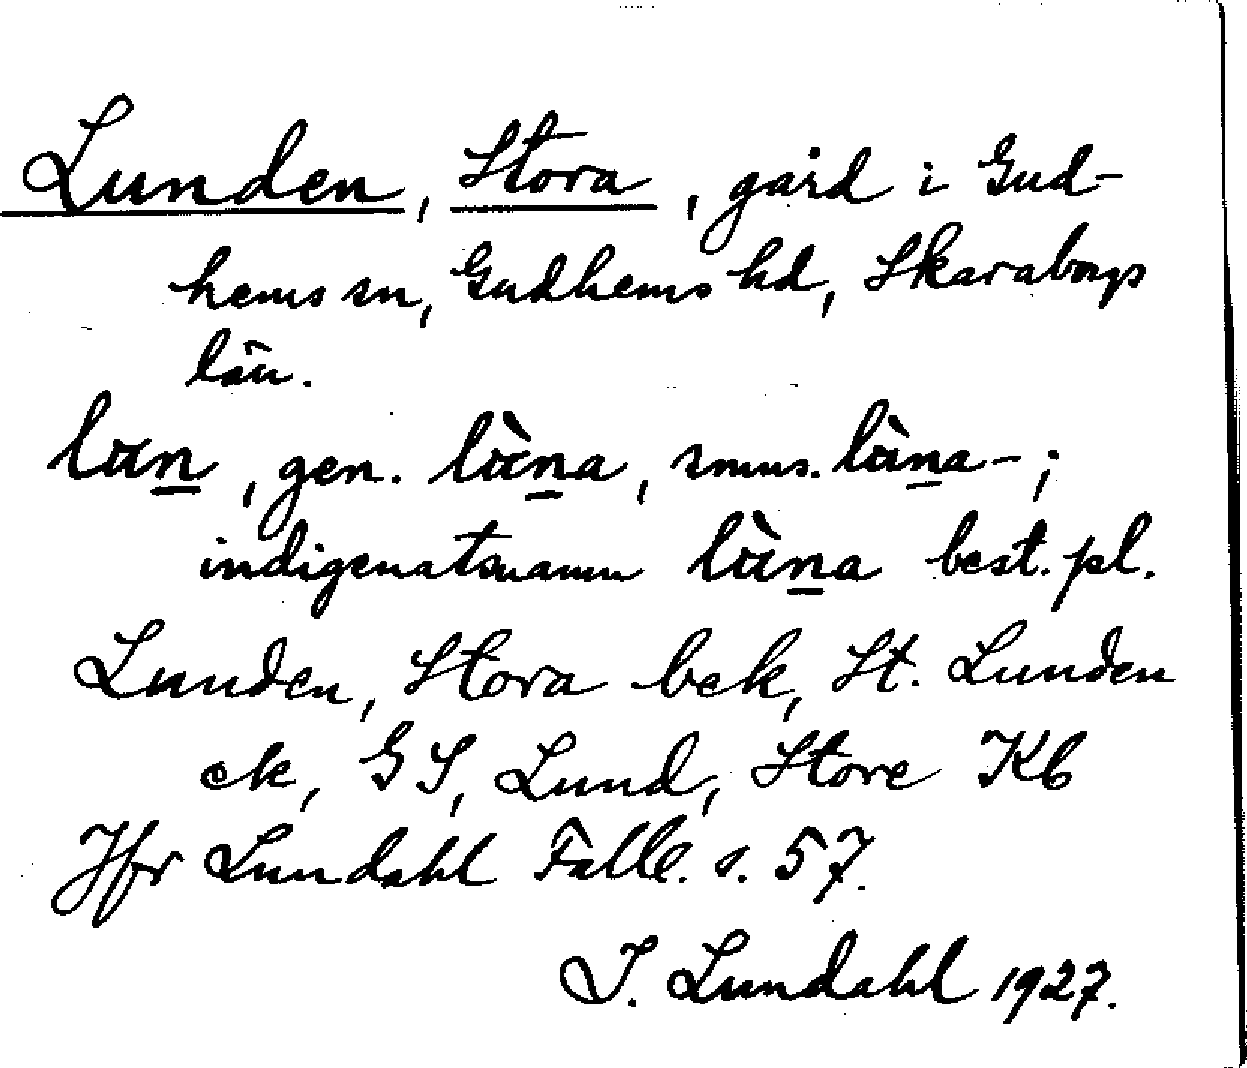 Lunden, Stora, gård i Gud-
hems sn, Gudhems hd, Skaraborgs
län.
lαn, gen. lὰna, smns. lὰna-;
indigenatsnamn lὰna best. pl.
Lunden, Stora bek, St. Lunden
ek, GS, Lund, Store Kb
Jfr Lundahl Falb. s. 57.
I. Lundahl 1927.